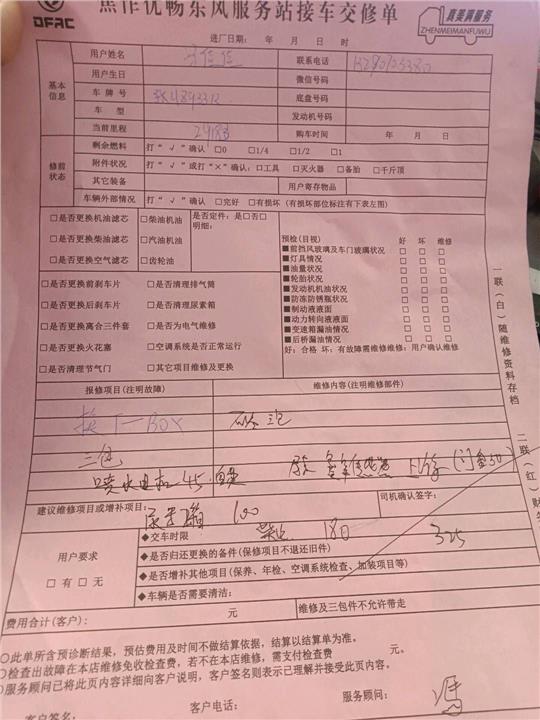 焦作优畅东风服务站接车交修单
DFAC
真美满服务
ZHENMEIMANFUWU
进厂日期: 年 月 日 时
基本信息
用户姓名
联系电话
用户生日
微信号码
车牌号
底盘号码
车型
发动机号
当前里程
购车时间 年 月 日
修前状态
剩余燃料 打“√”确认 □0 □1/4 □1/2 □1
附件状况 打“√”或打“×”确认: □工具 □灭火器 □备胎 □千斤顶
其它装备
用户寄存物品
车辆外部情况 打“√”确认 □完好 □有损坏 (有损坏部位标注有下表左图)
□是否更换机油滤芯 □柴油机油
□是否更换柴油滤芯 □汽油机油
□是否更换空气滤芯 □齿轮油
是否定件: 是□否□
明细:
□是否更换前刹车片 □是否清理排气筒
□是否更换后刹车片 □是否清理尿素箱
□是否更换离合三件套 □是否为电气维修
□是否更换火花塞 □空调系统是否正常运行
□是否清理节气门 □其它项目维修及更换
预检(目视) 好 坏 维修
■前挡风玻璃及车门玻璃状况 □ □ □
■灯具情况 □ □ □
■油量状况 □ □ □
■轮胎状况 □ □ □
■发动机机油状况 □ □ □
■防冻防锈瓶状况 □ □ □
■制动液液面 □ □ □
■动力转向液液面 □ □ □
■变速箱漏油情况 □ □ □
■后桥漏油情况 □ □ □
好: 合格 坏: 有故障需维修维修: 用户确认维修
报修项目(注明故障)
维修内容(注明维修部件)
换T-BOX
三包
喷水电机 45
建议维修项目或增补项目:
100
司机确认签字:
用户要求
□有□无
◆交车时限
180
325
◆是否归还更换的备件(保修项目不退还旧件)
◆是否增补其他项目(保养、年检、空调系统检查、加装项目等)
◆车辆是否需要清洁:
费用合计(客户): 元
维修及三包件不允许带走
○此单所含预诊断结果, 预估费用及时间不做结算依据, 结算以结算单为准。
○检查出故障在本店维修免收检查费, 若不在本店维修, 需支付检查费 元。
○服务顾问已将此页内容详细向客户说明, 客户签名则表示已理解并接受此页内容。
客户签名: 客户电话: 服务顾问:
一联(白)随维修资料存档
二联(红)财